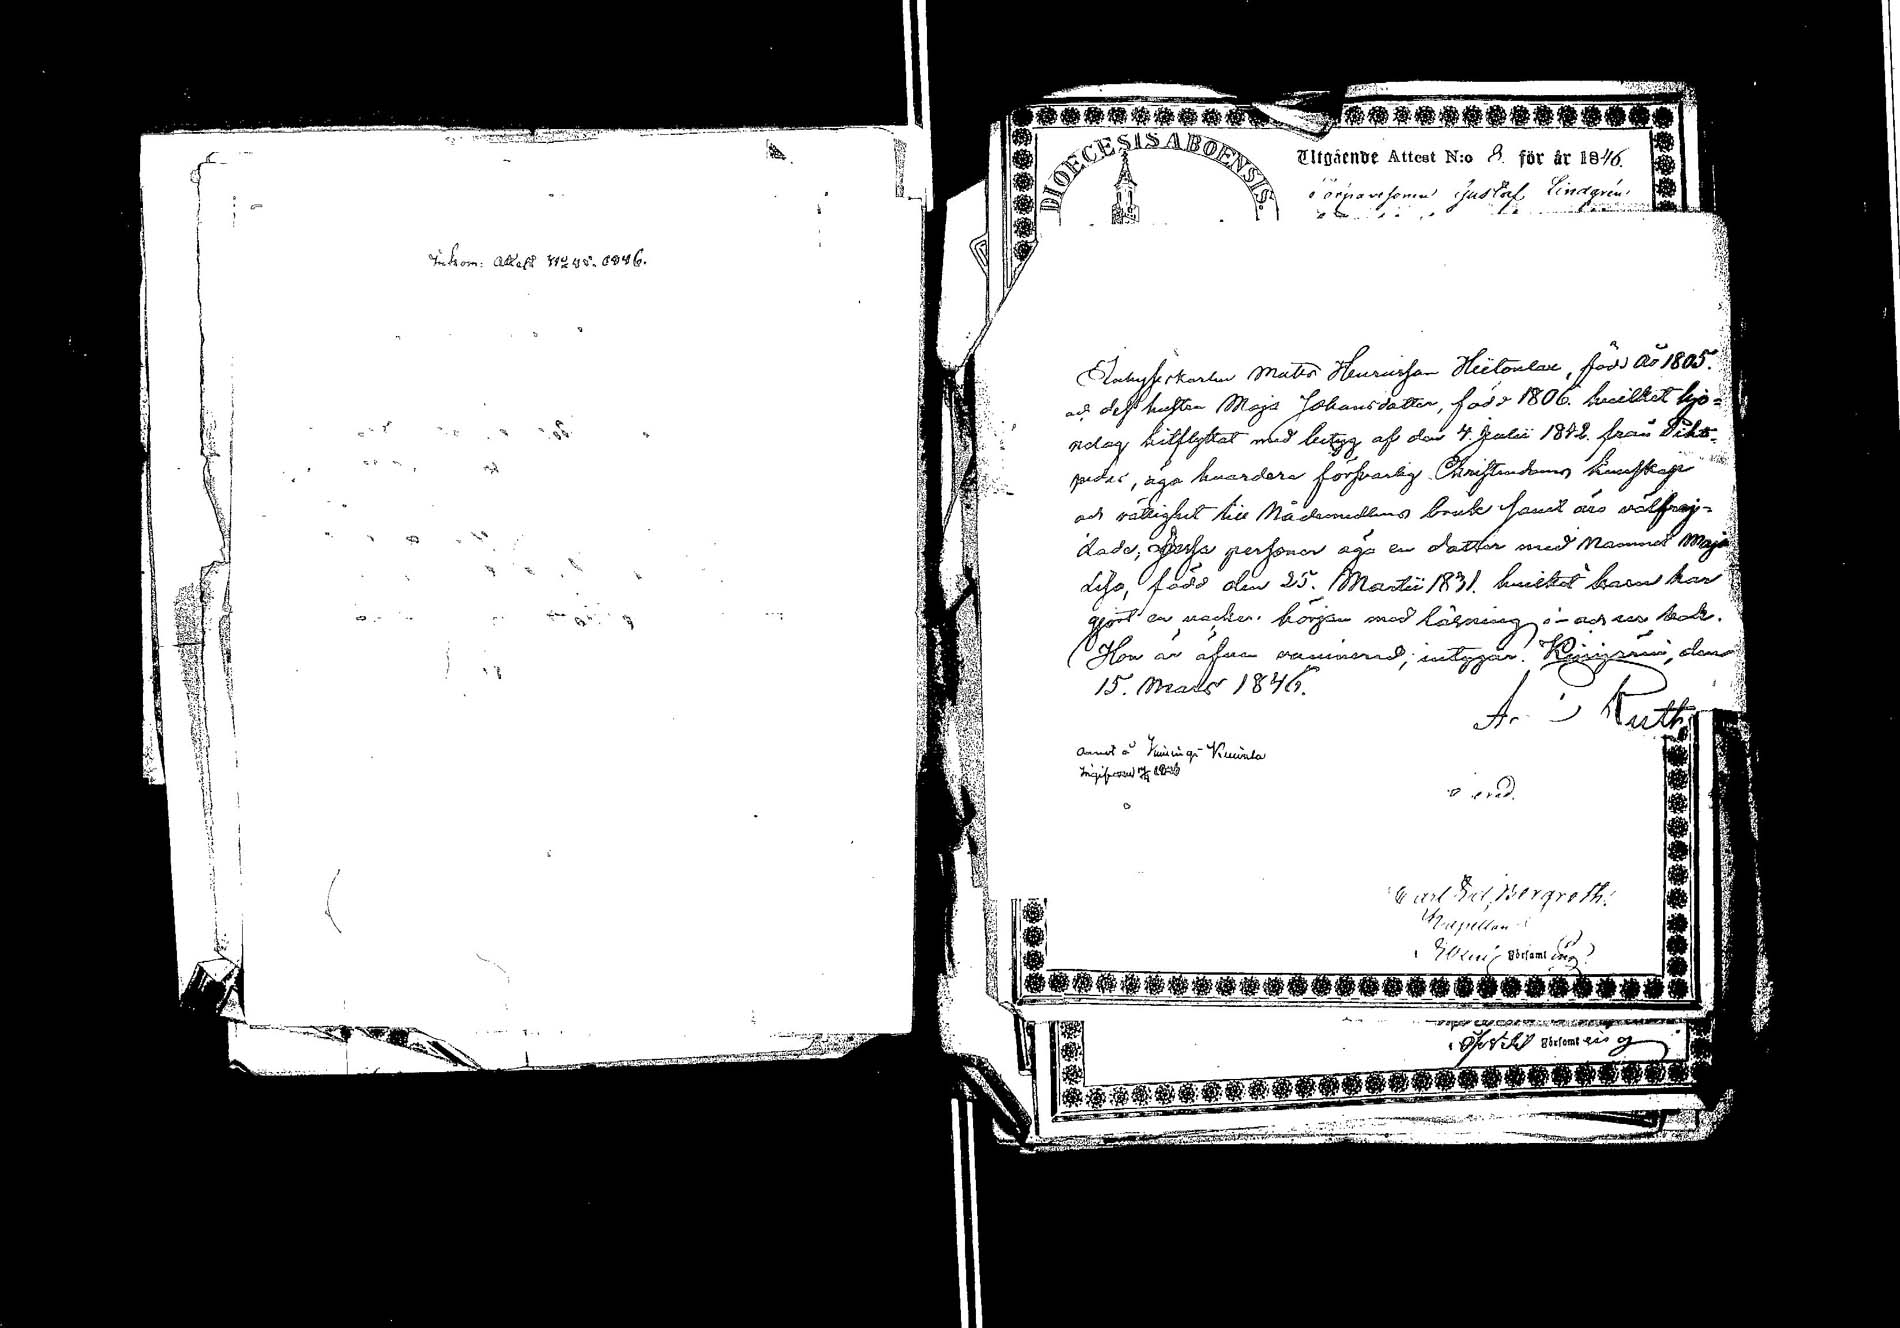 Inkom: Attest N:o 45. 1846.
DIOECESIS ABOENSIS.
Utgående Attest N:o 8. för år 1846.
Torparesonen Gustaf Lindgrén
Inhyseskarlen Matts Henricsson Hietonlax, född År 1805.
och dess hustru Maja Johansdotter, född 1806. hvilket hjo=
nelag hitflyttat med betyg af den 4. Julii 1842. från Pihti=
pudas, äga hvardera försvarlig Christendoms kunskap
och rättighet till Nådemedlens bruk samt äro välfrej=
dade; Dessa personer äga en dotter med Namnet Maja
Lisa, född den 25. Martii 1831. hvilket barn har
gjort en vacker början med läsning i och ur bok.
Hon är äfven vaccinerad; intygar. Kivijärvi, den
15. Mars 1846.
Ruth
Carl Ed. Bergroth.
Kapellan
församling.
församling